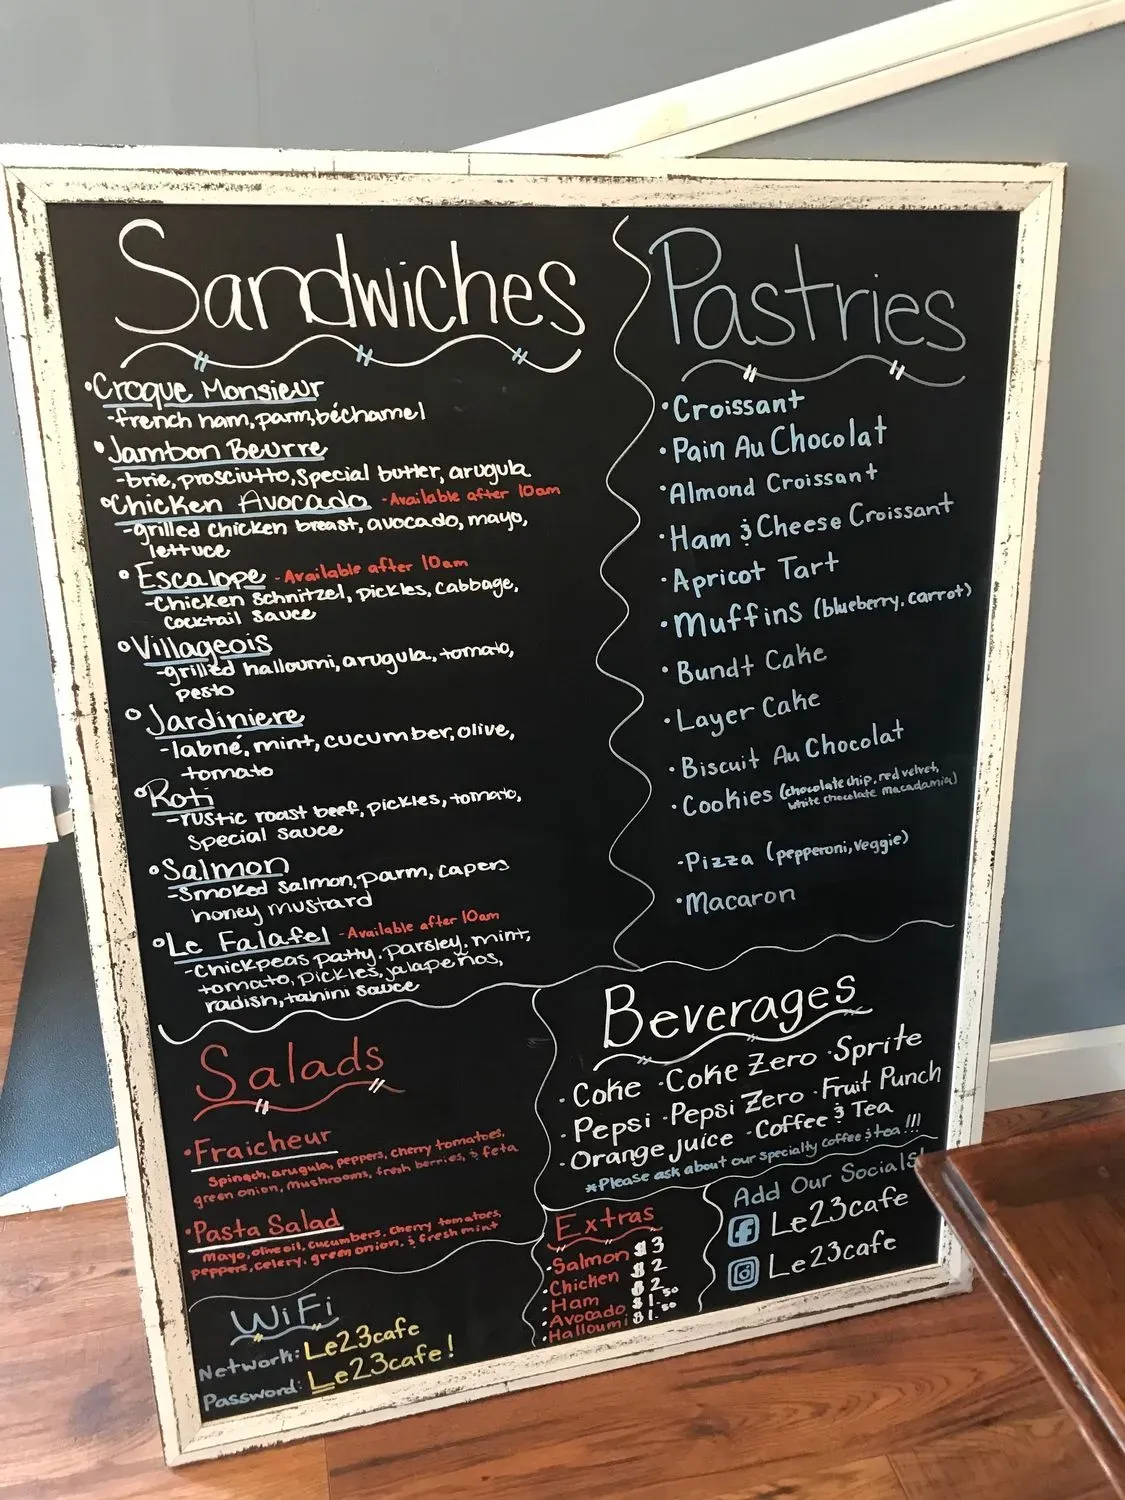 Sandwiches
•Croque Monsieur
-french ham, parm, béchamel
•Jambon Beurre
-brie, prosciutto, special butter, arugula
•Chicken Avocado -Available after 10am
-grilled chicken breast, avocado, mayo,
lettuce
•Escalope -Available after 10am
-Chicken schnitzel, pickles, cabbage,
cocktail sauce
•Villageois
-grilled halloumi, arugula, tomato,
pesto
•Jardiniere
-labné, mint, cucumber, olive,
tomato
•Roti
-rustic roast beef, pickles, tomato,
special sauce
•Salmon
-smoked salmon, parm, capers
honey mustard
•Le Falafel -Available after 10am
-Chickpeas patty, parsley, mint,
tomato, pickles, jalapeños,
radish, tahini sauce
Pastries
•Croissant
•Pain Au Chocolat
•Almond Croissant
•Ham & Cheese Croissant
•Apricot Tart
•Muffins (blueberry, carrot)
•Bundt Cake
•Layer Cake
•Biscuit Au Chocolat
•Cookies (chocolate chip, red velvet,
white chocolate macadamia)
-Pizza (pepperoni, veggie)
•Macaron
Beverages
•Coke •Coke Zero •Sprite
•Pepsi •Pepsi Zero •Fruit Punch
•Orange juice •Coffee & Tea
*Please ask about our specialty coffee & tea!!!
Salads
•Fraicheur
Spinach, arugula, peppers, cherry tomatoes,
green onion, mushrooms, fresh berries, & feta
•Pasta Salad
Mayo, olive oil, cucumbers, cherry tomatoes,
peppers, celery, green onion, & fresh mint
Extras
•Salmon $3
•Chicken $2
•Ham $2
•Avocado $1.50
•Halloumi $1.50
Add Our Socials!
Le23cafe
Le23cafe
WiFi
Network: Le23cafe
Password: Le23cafe!